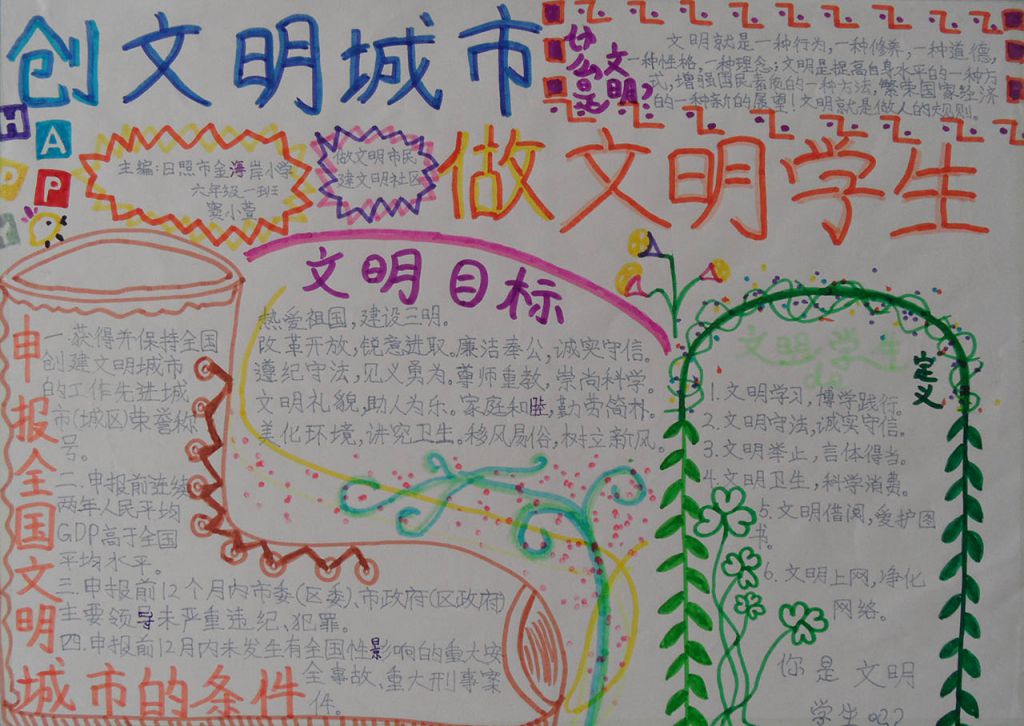 创文明城市
什么是
文明?
文明就是一种行为,一种修养,一种道德,
一种性格,一种理念;文明是提高自身水平的一种方
式,增强国民素质的一种方法,繁荣国家经济
的一种新的展望!文明就是做人的规则。
HAPP
主编:日照市金海岸小学
六年级一班
窦小萱
做文明市民
建文明社区
做文明学生
文明目标
热爱祖国,建设三明。
改革开放,锐意进取。廉洁奉公,诚实守信。
遵纪守法,见义勇为。尊师重教,崇尚科学。
文明礼貌,助人为乐。家庭和睦,勤劳简朴。
美化环境,讲究卫生。移风易俗,树立新风。
申报全国文明
城市的条件
一.获得并保持全国
创建文明城市
的工作先进城
市(城区)荣誉称
号。
二.申报前连续
两年人民平均
GDP高于全国
平均水平。
三.申报前12个月内市委(区委)、市政府(区政府)
主要领导未严重违纪、犯罪。
四.申报前12月内未发生有全国性影响的重大安
全事故、重大刑事案
件。
文明学生
的
定义
1.文明学习,博学践行。
2.文明守法,诚实守信。
3.文明举止,言体得当。
4.文明卫生,科学消费。
5.文明借阅,爱护图
书。
6.文明上网,净化
网络。
你是文明
学生吗?